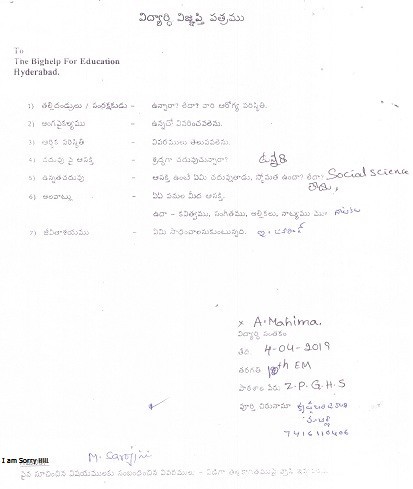 విద్యార్థి విజ్ఞప్తి పత్రము
To
The Bighelp For Education
Hyderabad.
1) తల్లిదండ్రులు / సంరక్షకుడు - ఉన్నారా? లేదా? వారి ఆరోగ్య పరిస్థితి.
2) అంగవైకల్యము - ఉన్నచో వివరించవలెను.
3) ఆర్థిక పరిస్థితి - వివరములు తెలుపవలెను.
4) చదువు పై ఆసక్తి - శ్రద్ధగా చదువుచున్నారా?
5) ఉన్నతచదువు - ఆసక్తి ఉంటే ఏమి చదువుతాడు, స్తోమత ఉందా? లేదా? Social science
6) అలవాట్లు - ఏఏ పనుల మీద ఆసక్తి.
ఉదా - కవిత్వము, సంగీతము, అల్లికలు, నాట్యము
7) జీవితాశయము - ఏమి సాధించాలనుకుంటున్నది.
x A. Mahima.
విద్యార్థి సంతకం
తేది 4-04-2019
తరగతి 10th EM
పాఠశాల పేరు Z.P.G.H.S
పూర్తి చిరునామా
7416110406
M. Sarojini
I am Sorry !!!!.
పైన సూచించిన విషయములకు సంబంధించిన వివరములు